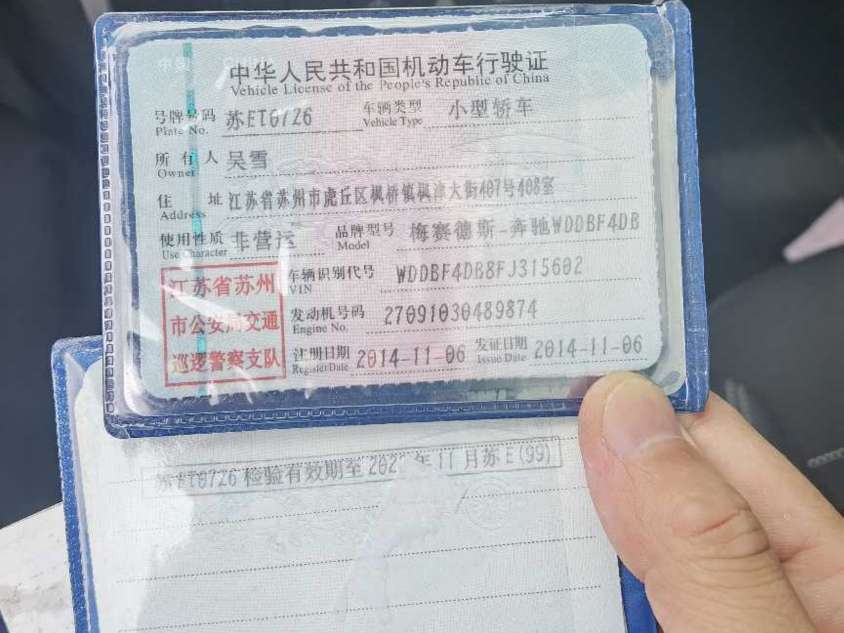 中华人民共和国机动车行驶证
Vehicle License of the People's Republic of China
号牌号码 苏ET0726 车辆类型 小型轿车
Plate No. Vehicle Type
所有人 吴雪
Owner
住址 江苏省苏州市虎丘区枫桥镇枫津大街407号408室
Address
使用性质 非营运 品牌型号 梅赛德斯-奔驰WDDBF4DB
Use Character Model
江苏省苏州 车辆识别代号 WDDBF4DB8FJ315602
VIN
市公安局交通 发动机号码 27091030489874
Engine No.
巡逻警察支队 注册日期 2014-11-06 发证日期 2014-11-06
Register Date Issue Date
苏ET0726检验有效期至 年11月苏E(99)